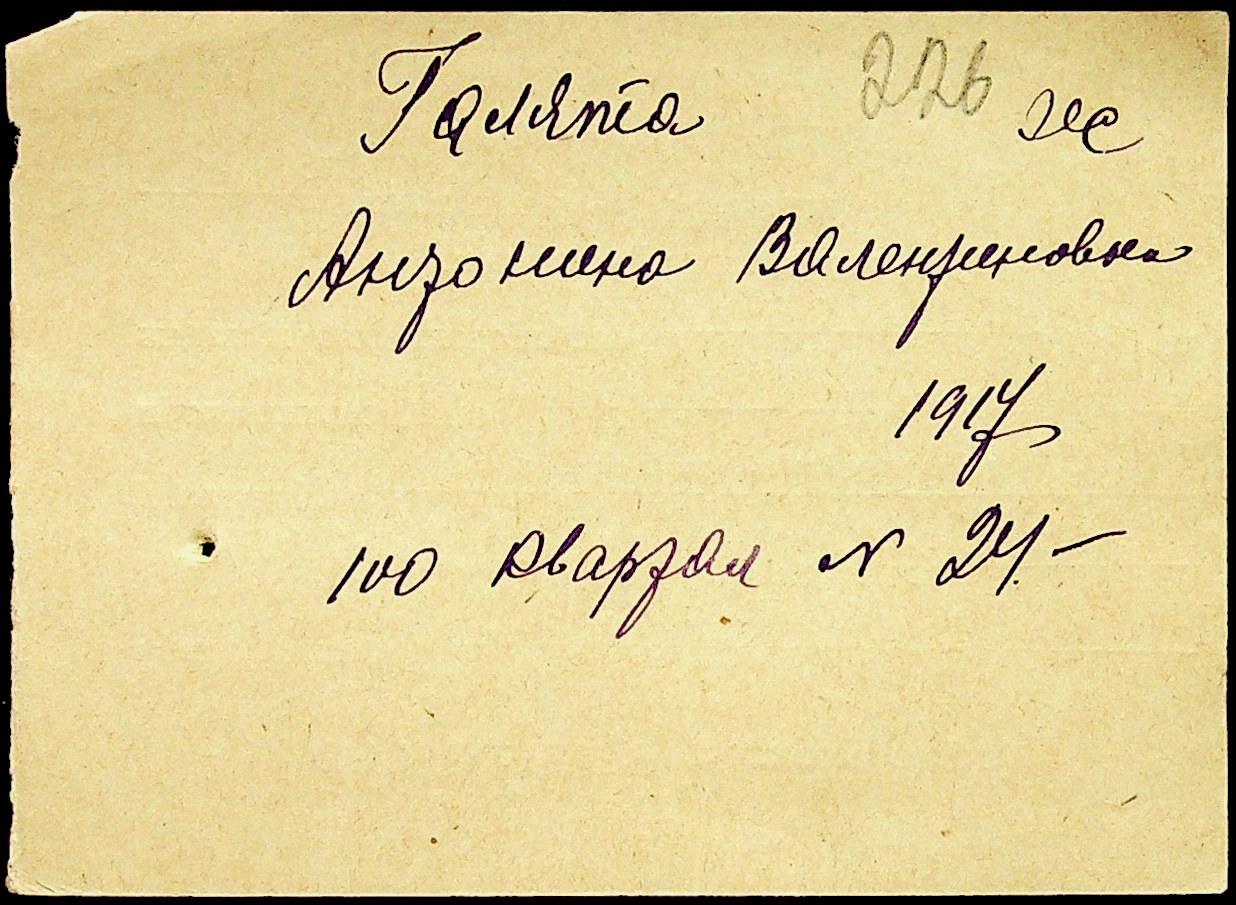 Галята 226 же
Антонина Валентиновна
1917
100 квартал N 24. –